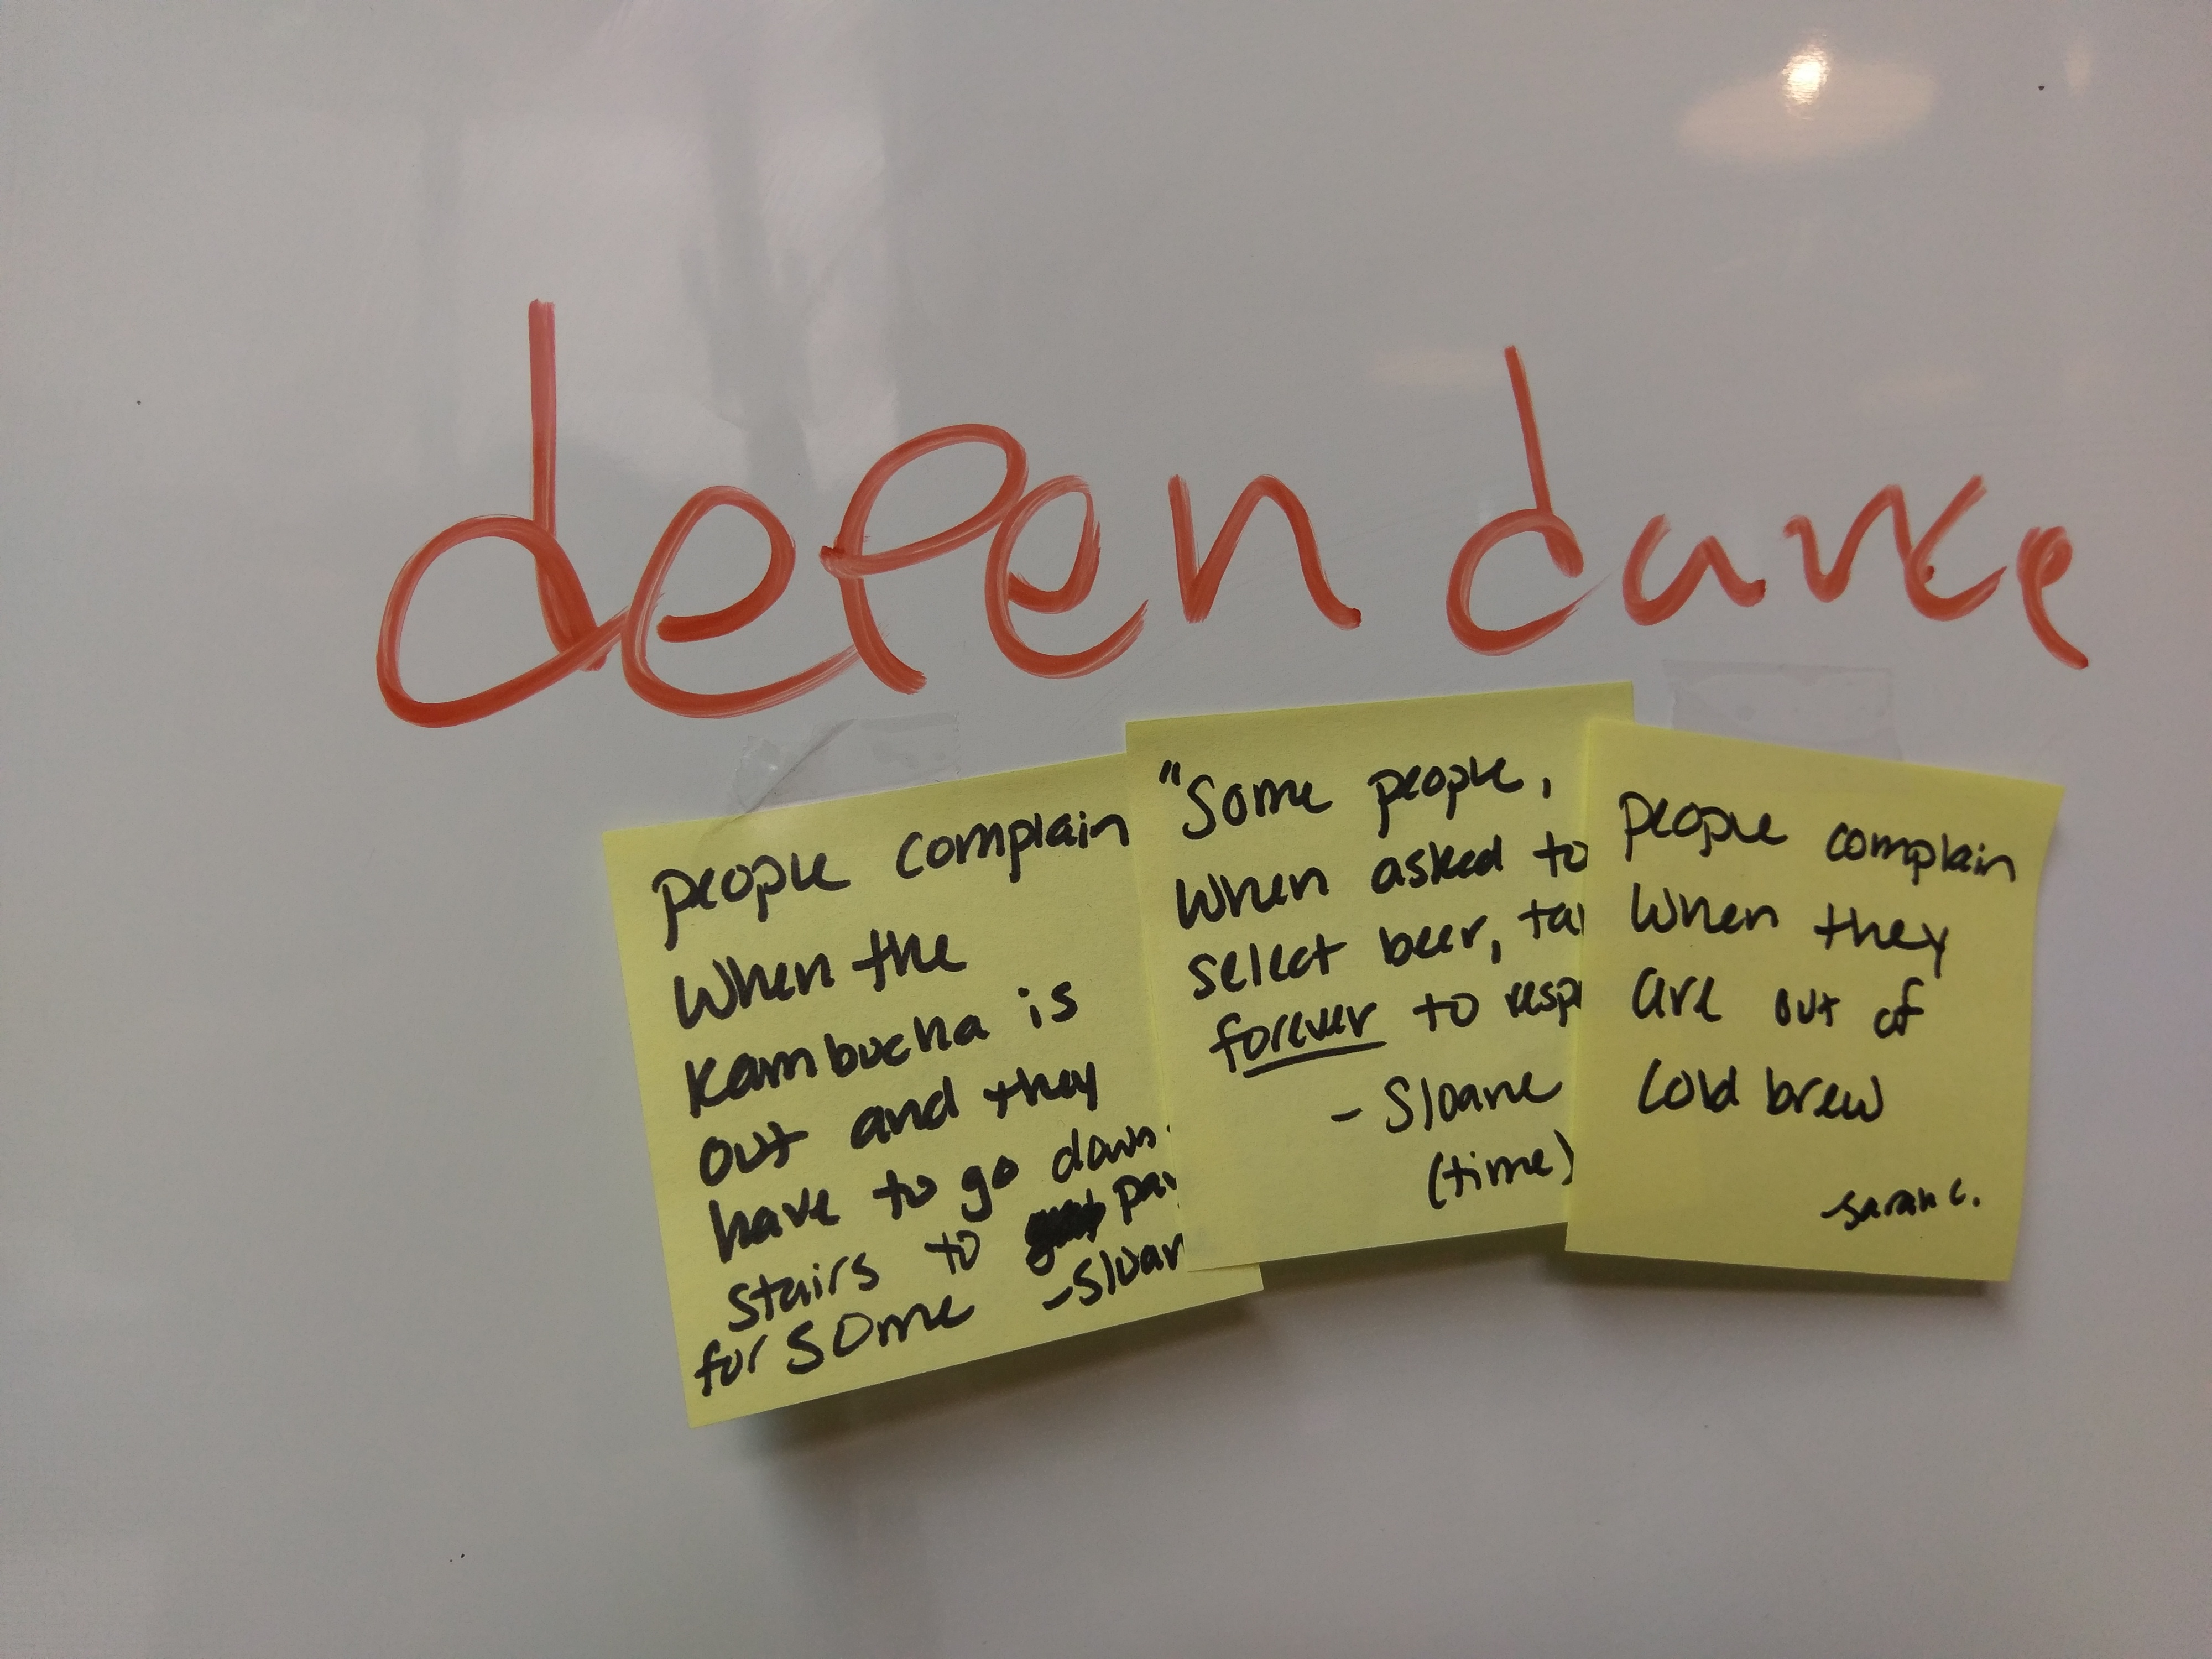 dependance
people complain
when the
kambucha is
out and they
have to go down
stairs to pay
for some -Sloan
"Some people,
when asked to
select beer, ta
forever to resp
- Sloane
(time)
people complain
when they
are out of
cold brew
-sarah c.